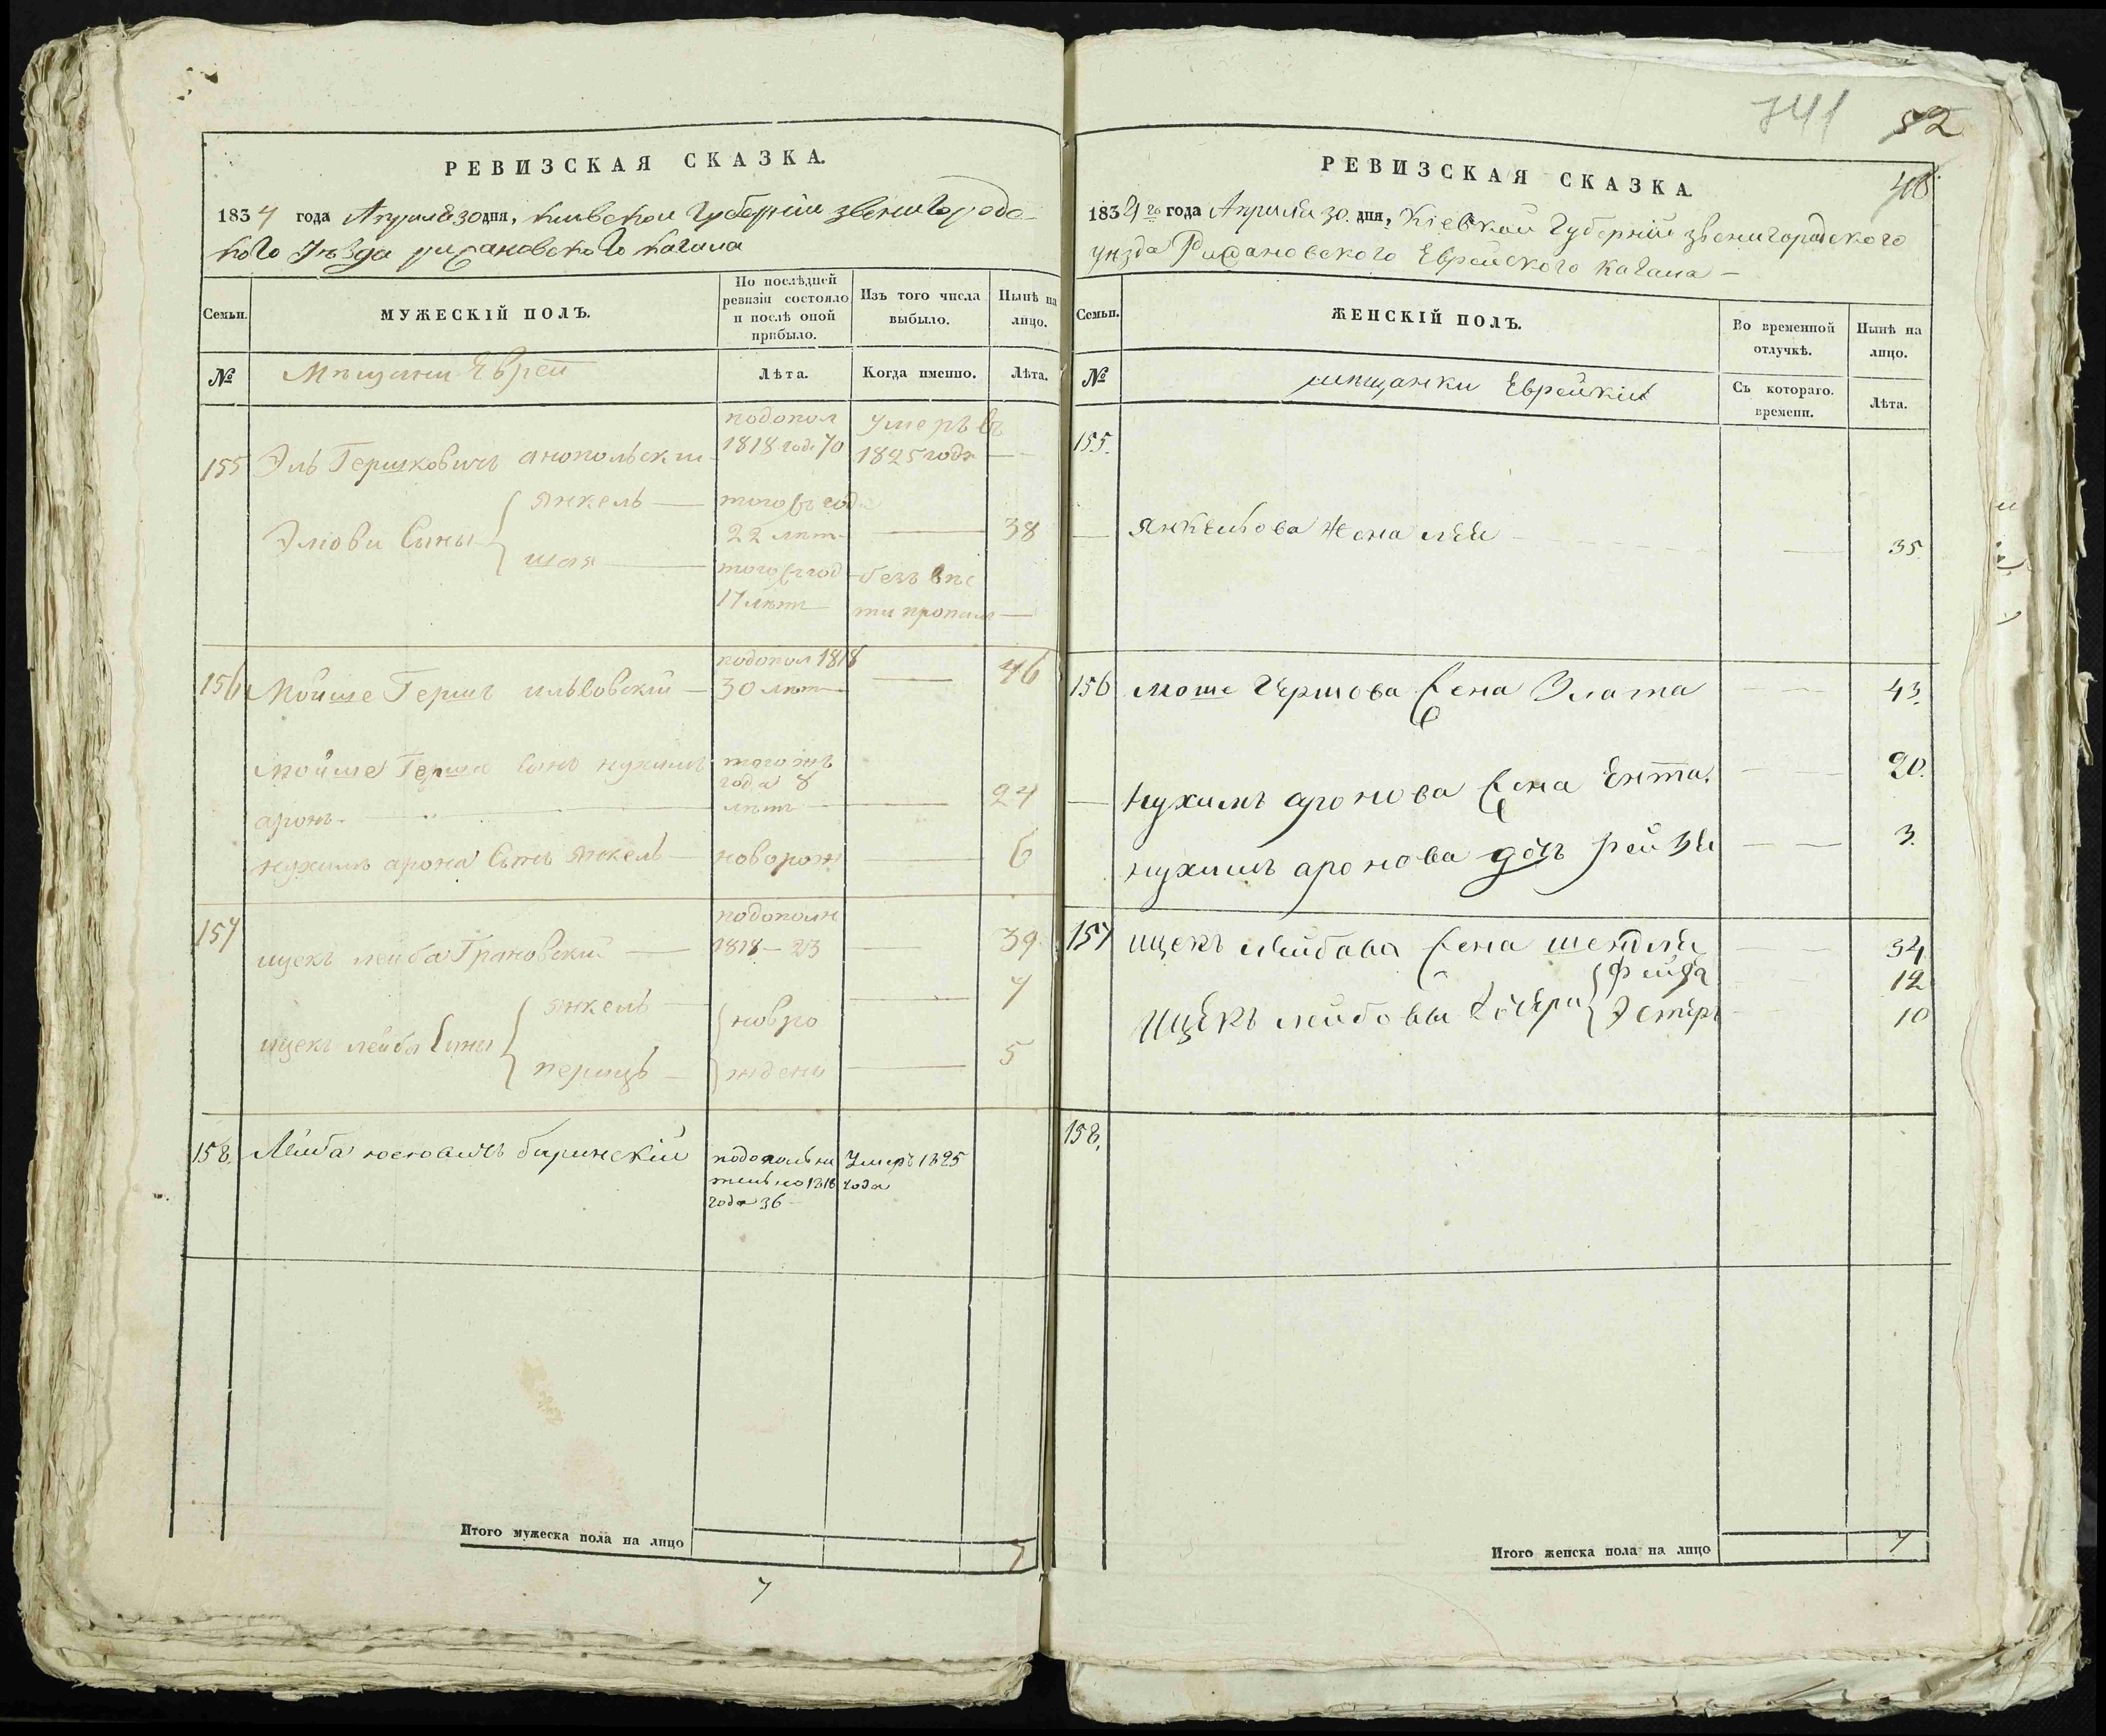 РЕВИЗСКАЯ СКАЗКА.
1834 года Апреля 30 дня, Киевской Губернии звенигородс-
кого Уѣзда рижановского кагала
Семьи.
МУЖЕСКІЙ ПОЛЪ.
По послѣдней ревизіи состояло и послѣ оной прибыло.
Изъ того числа выбыло.
Нынѣ на лицо.
№
Мещани Евреи
Лѣта.
Когда именно.
Лѣта.
155 Эль Гершковичъ анопольский
подопол
1818 года 70
умеръ въ
1825 года
Элови Сыны
Янкель
того ж год
22 лет
38
шая
того ж год
17 лет
безъ вес
ти пропал
156 Мойше Герш ильвовский
подопол 1818
30 лет
46
Мойше Герша Сынъ нухимъ
аронъ
того жъ
года 8
летъ
24
нухимъ арона Сынъ Янкель
новорож
6
157 ицекъ лейба Грановский
подополн
1818 - 23
39
ицекъ лейба Сыны
Янкель
7
перицъ
новро
ждени
5
158. Лейба иосиовичъ биринскій
подополни
тельно 1818
года 36
Умеръ 1825
года
Итого мужеска пола на лицо
7
7
741 52
РЕВИЗСКАЯ СКАЗКА.
40
1834 го года Апреля 30. дня, Кіевской Губерній звенигородского
уезда Рижановского Еврейского Кагала
Семьи.
ЖЕНСКІЙ ПОЛЪ.
Во временной отлучкѣ.
Нынѣ на лицо.
№
мещанки Еврейкіи
Съ котораго времени.
Лѣта.
155.
Янкельова жена лея
35
156 моше гершова жена Злата
43.
Нухимъ аронова жена Ента.
20.
нухимъ аронова дочь рейзя
3.
157 ицекъ лейбова жена шендля
34
Ицекъ лейбовы дочери
Фейга
12
Эстеръ
10
158.
Итого женска пола на лицо
7